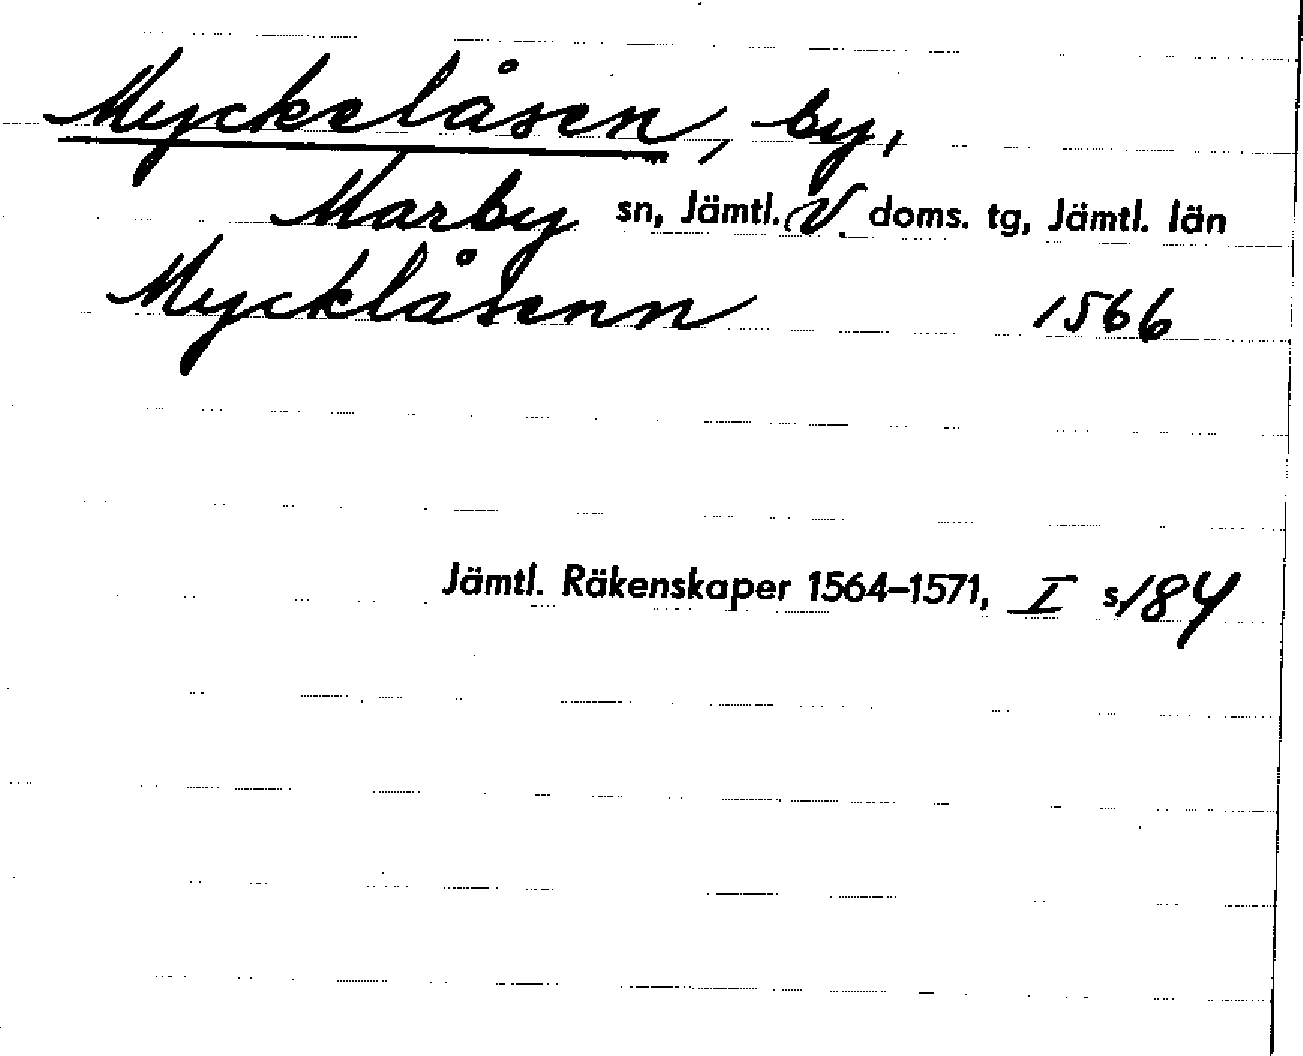 Myckelåsen, by,
Marby sn, Jämtl. V. doms. tg, Jämtl. län
Mycklåsenn 1566
Jämtl. Räkenskaper 1564–1571, I s 184